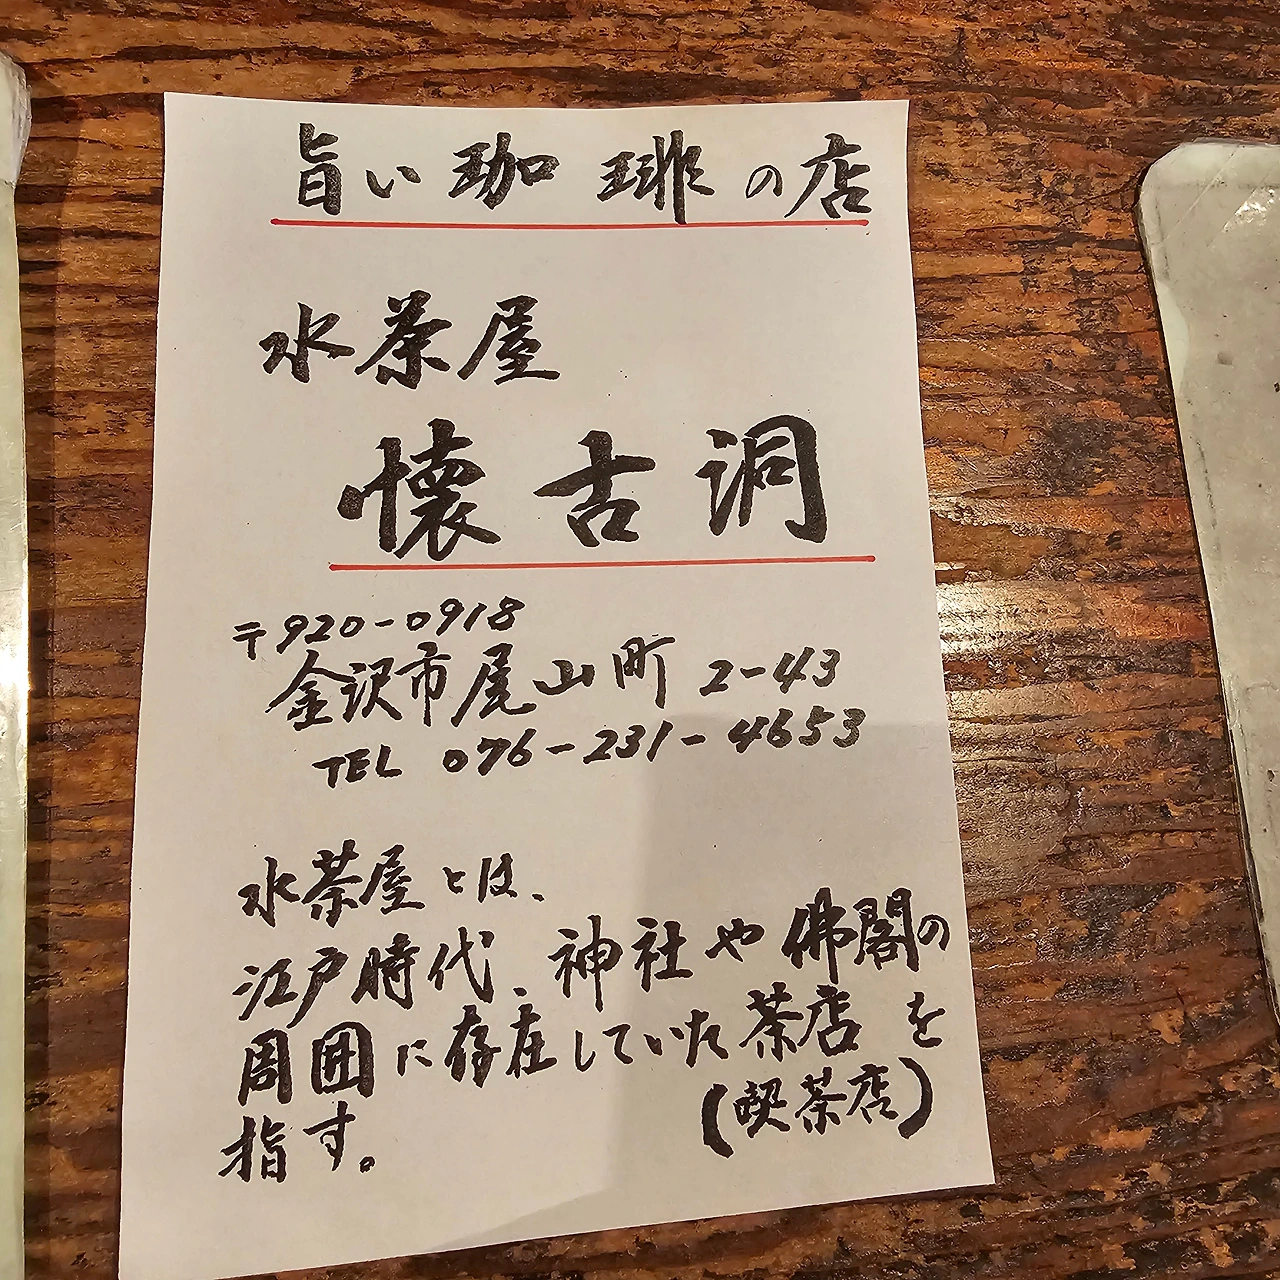 旨い珈琲の店
水茶屋
懐古洞
〒920-0918
金沢市尾山町 2-43
TEL 076-231-4653
水茶屋とは、
江戸時代、神社や佛閣の
周囲に存在していた茶店を
(喫茶店)
指す。